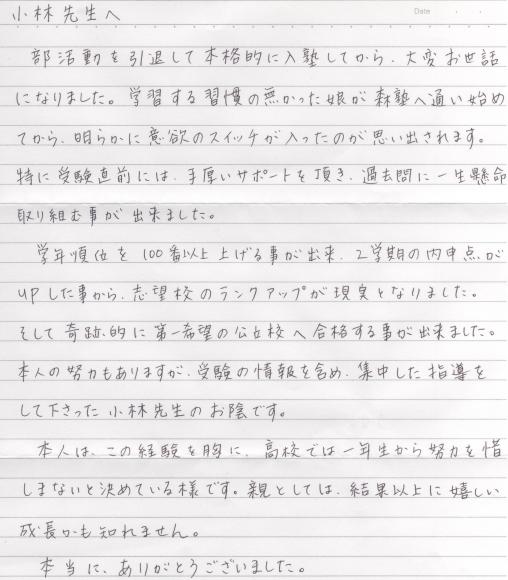 小林先生へ
Date
部活動を引退して本格的に入塾してから、大変お世話
になりました。学習する習慣の無かった娘が森塾へ通い始め
てから、明らかに意欲のスイッチが入ったのが思い出されます。
特に受験直前には、手厚いサポートを頂き、過去問に一生懸命
取り組む事が出来ました。
学年順位を100番以上上げる事が出来、2学期の内申点が
UPした事から、志望校のランクアップが現実となりました。
そして奇跡的に第一希望の公立校へ合格する事が出来ました。
本人の努力もありますが、受験の情報を含め、集中した指導を
して下さった小林先生のお陰です。
本人は、この経験を胸に、高校では一年生から努力を惜
しまないと決めている様です。親としては、結果以上に嬉しい
成長かも知れません。
本当に、ありがとうございました。